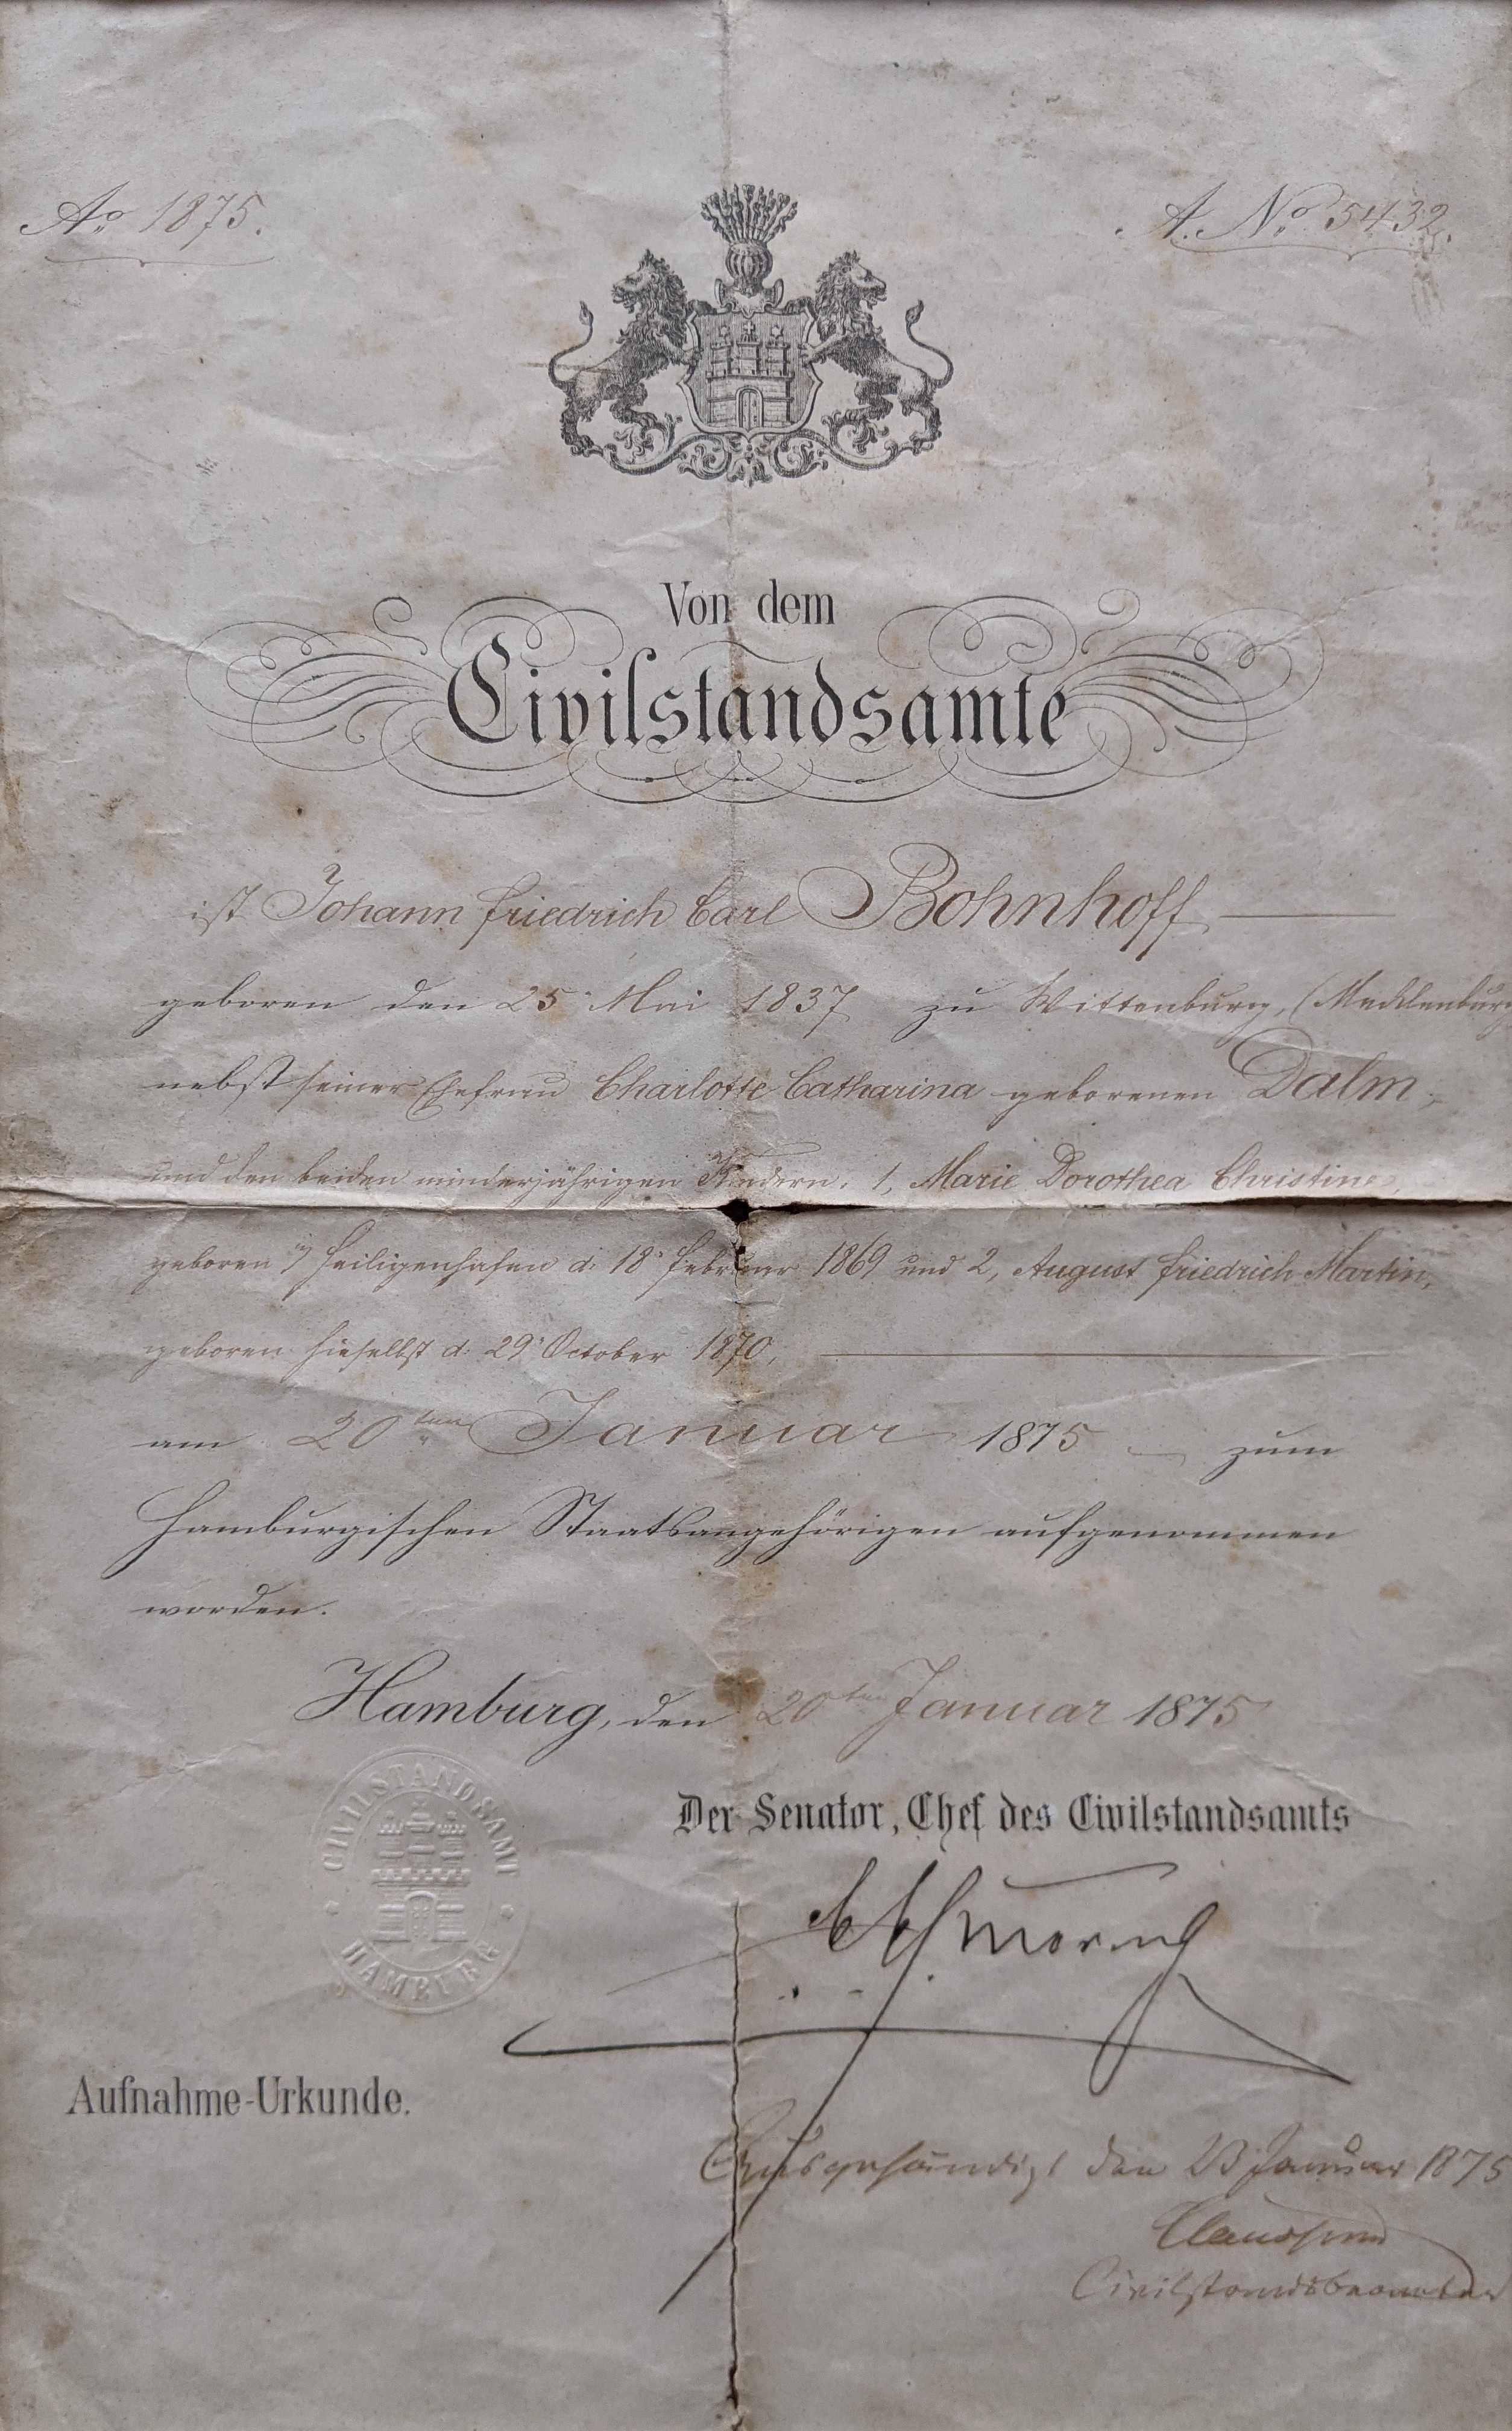 Ao 1875.
A. No 5432.
Von dem
Civilstandsamte
ist Johann Friedrich Carl Bohnhoff
geboren den 25. Mai 1837 zu Wittenburg, (Mecklenburg
nebst seiner Ehefrau Charlotte Catharina geborenen Dalm,
und den beiden minderjährigen Kindern: 1, Marie Dorothea Christine,
geboren in Heiligenhafen d. 18. Februar 1869 und 2, August Friedrich Martin,
geboren hieselbst d. 29. October 1870,
am 20ten Januar 1875 zum
Hamburgischen Staatsangehörigen aufgenommen
worden.
Hamburg, den 20ten Januar 1875
Der Senator, Chef des Civilstandsamts
CIVILSTANDSAMT
HAMBURG
Aufnahme-Urkunde.
Ausgehändigt den 23 Januar 1875
Civilstandsbeamter